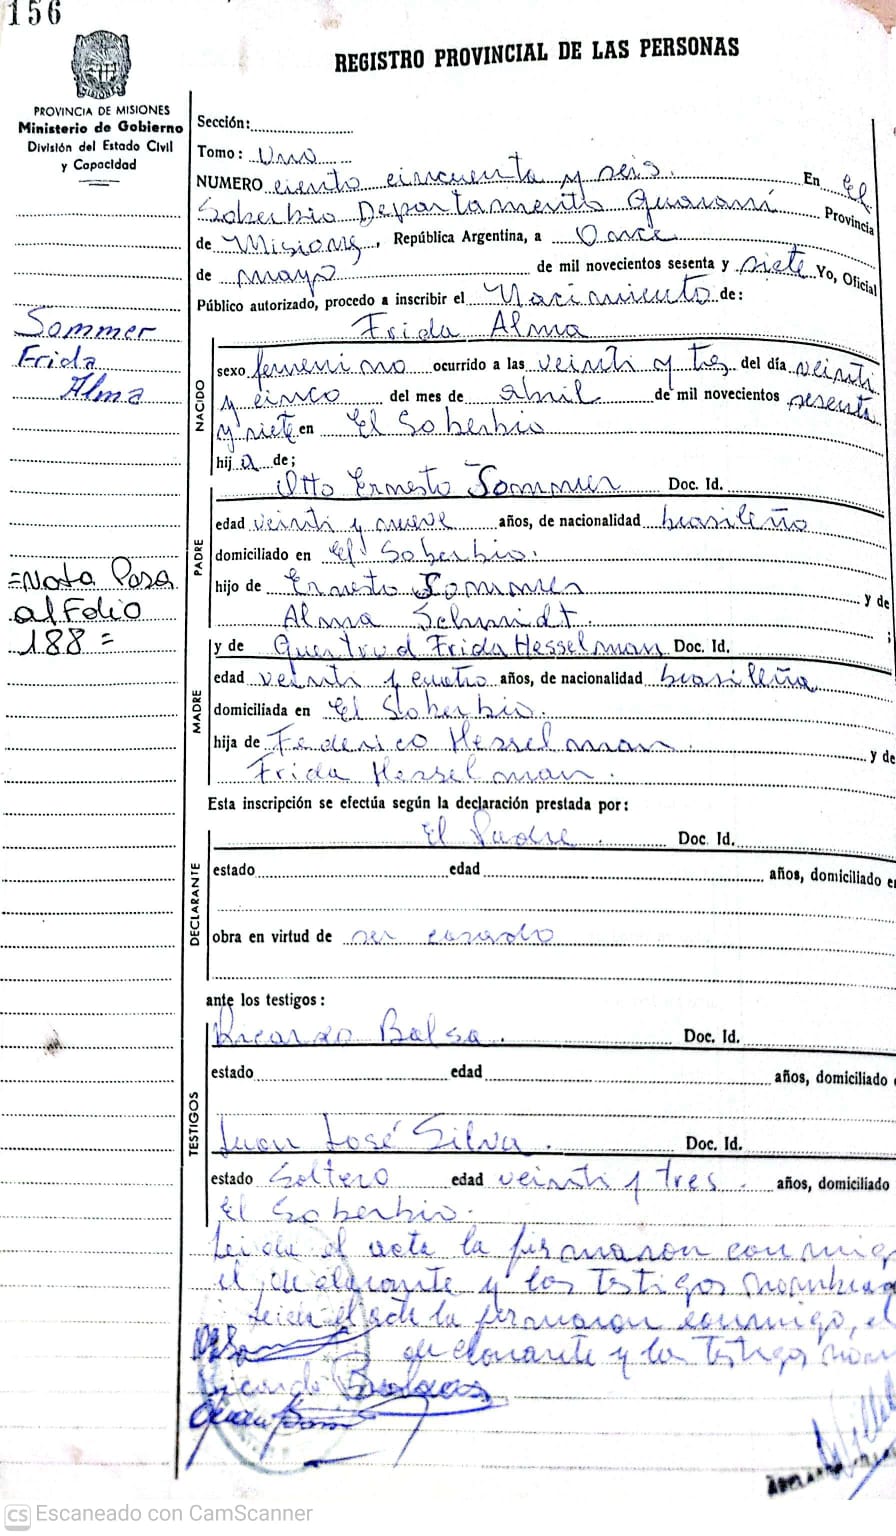 156
REGISTRO PROVINCIAL DE LAS PERSONAS
PROVINCIA DE MISIONES
Ministerio de Gobierno
División del Estado Civil
y Capacidad
Sección:
Tomo: Uno
NUMERO ciento cincuenta y seis. En El
Soberbio Departamento Guaraní Provincia
de Misiones, República Argentina, a Once
de mayo de mil novecientos sesenta y siete Yo, Oficial
Público autorizado, procedo a inscribir el Nacimiento de:
Frida Alma
Sommer
Frida
Alma
NACIDO
sexo femenino ocurrido a las veinti y tres del día veinti
y cinco del mes de abril de mil novecientos sesenta
y siete en El Soberbio
hija de;
Otto Ernesto Sommer Doc. Id.
PADRE
edad veinti y nueve años, de nacionalidad brasileño
domiciliado en El Soberbio.
hijo de Ernesto Sommer y de
Alma Schmidt. ;
=Nota Pasa
al Folio
188=
MADRE
y de Guertrud Frida Hesselman Doc. Id.
edad veinti y cuatro años, de nacionalidad brasileña
domiciliada en El Soberbio.
hija de Federico Hesselman. y de
Frida Hesselman.
Esta inscripción se efectúa según la declaración prestada por:
DECLARANTE
El Padre. Doc. Id.
estado edad años, domiciliado en
obra en virtud de ser casado
ante los testigos:
TESTIGOS
Ricardo Balsa. Doc. Id.
estado edad años, domiciliado
Juan José Silva. Doc. Id.
estado Soltero edad veinti y tres. años, domiciliado
El Soberbio.
Leida el acta la firmaron conmigo
el declarante y los Testigos
Leida el acta la firmaron conmigo, el
declarante y los Testigos
Ricardo
CS Escaneado con CamScanner